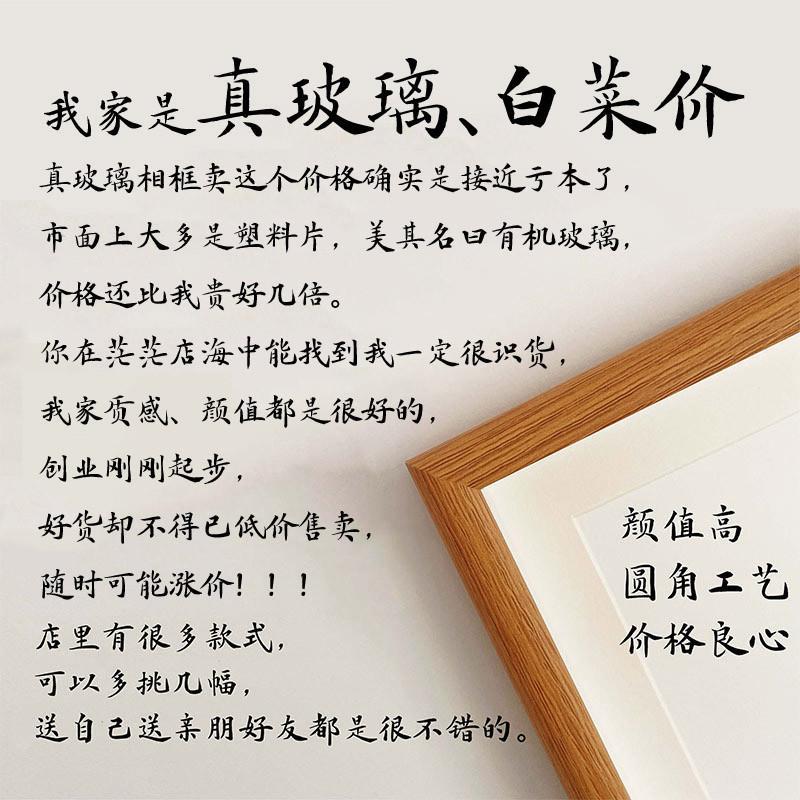 我家是真玻璃、白菜价
真玻璃相框卖这个价格确实是接近亏本了，
市面上大多是塑料片，美其名曰有机玻璃，
价格还比我贵好几倍。
你在茫茫店海中能找到我一定很识货，
我家质感、颜值都是很好的，
创业刚刚起步，
好货却不得已低价售卖，
随时可能涨价！！！
店里有很多款式，
可以多挑几幅，
送自己送亲朋好友都是很不错的。
颜值高
圆角工艺
价格良心